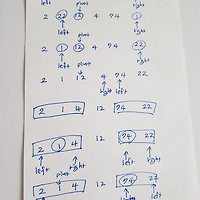 left pivot right
2 22 12 4 74 1
left right
pivot
2 1 12 4 74 22
left right
pivot
2 1 12 4 74 22
right left
2 1 4 12 74 22
2 1 4 12 74 22
left right left right
pivot
2 1 4 12 74 22
left right left right